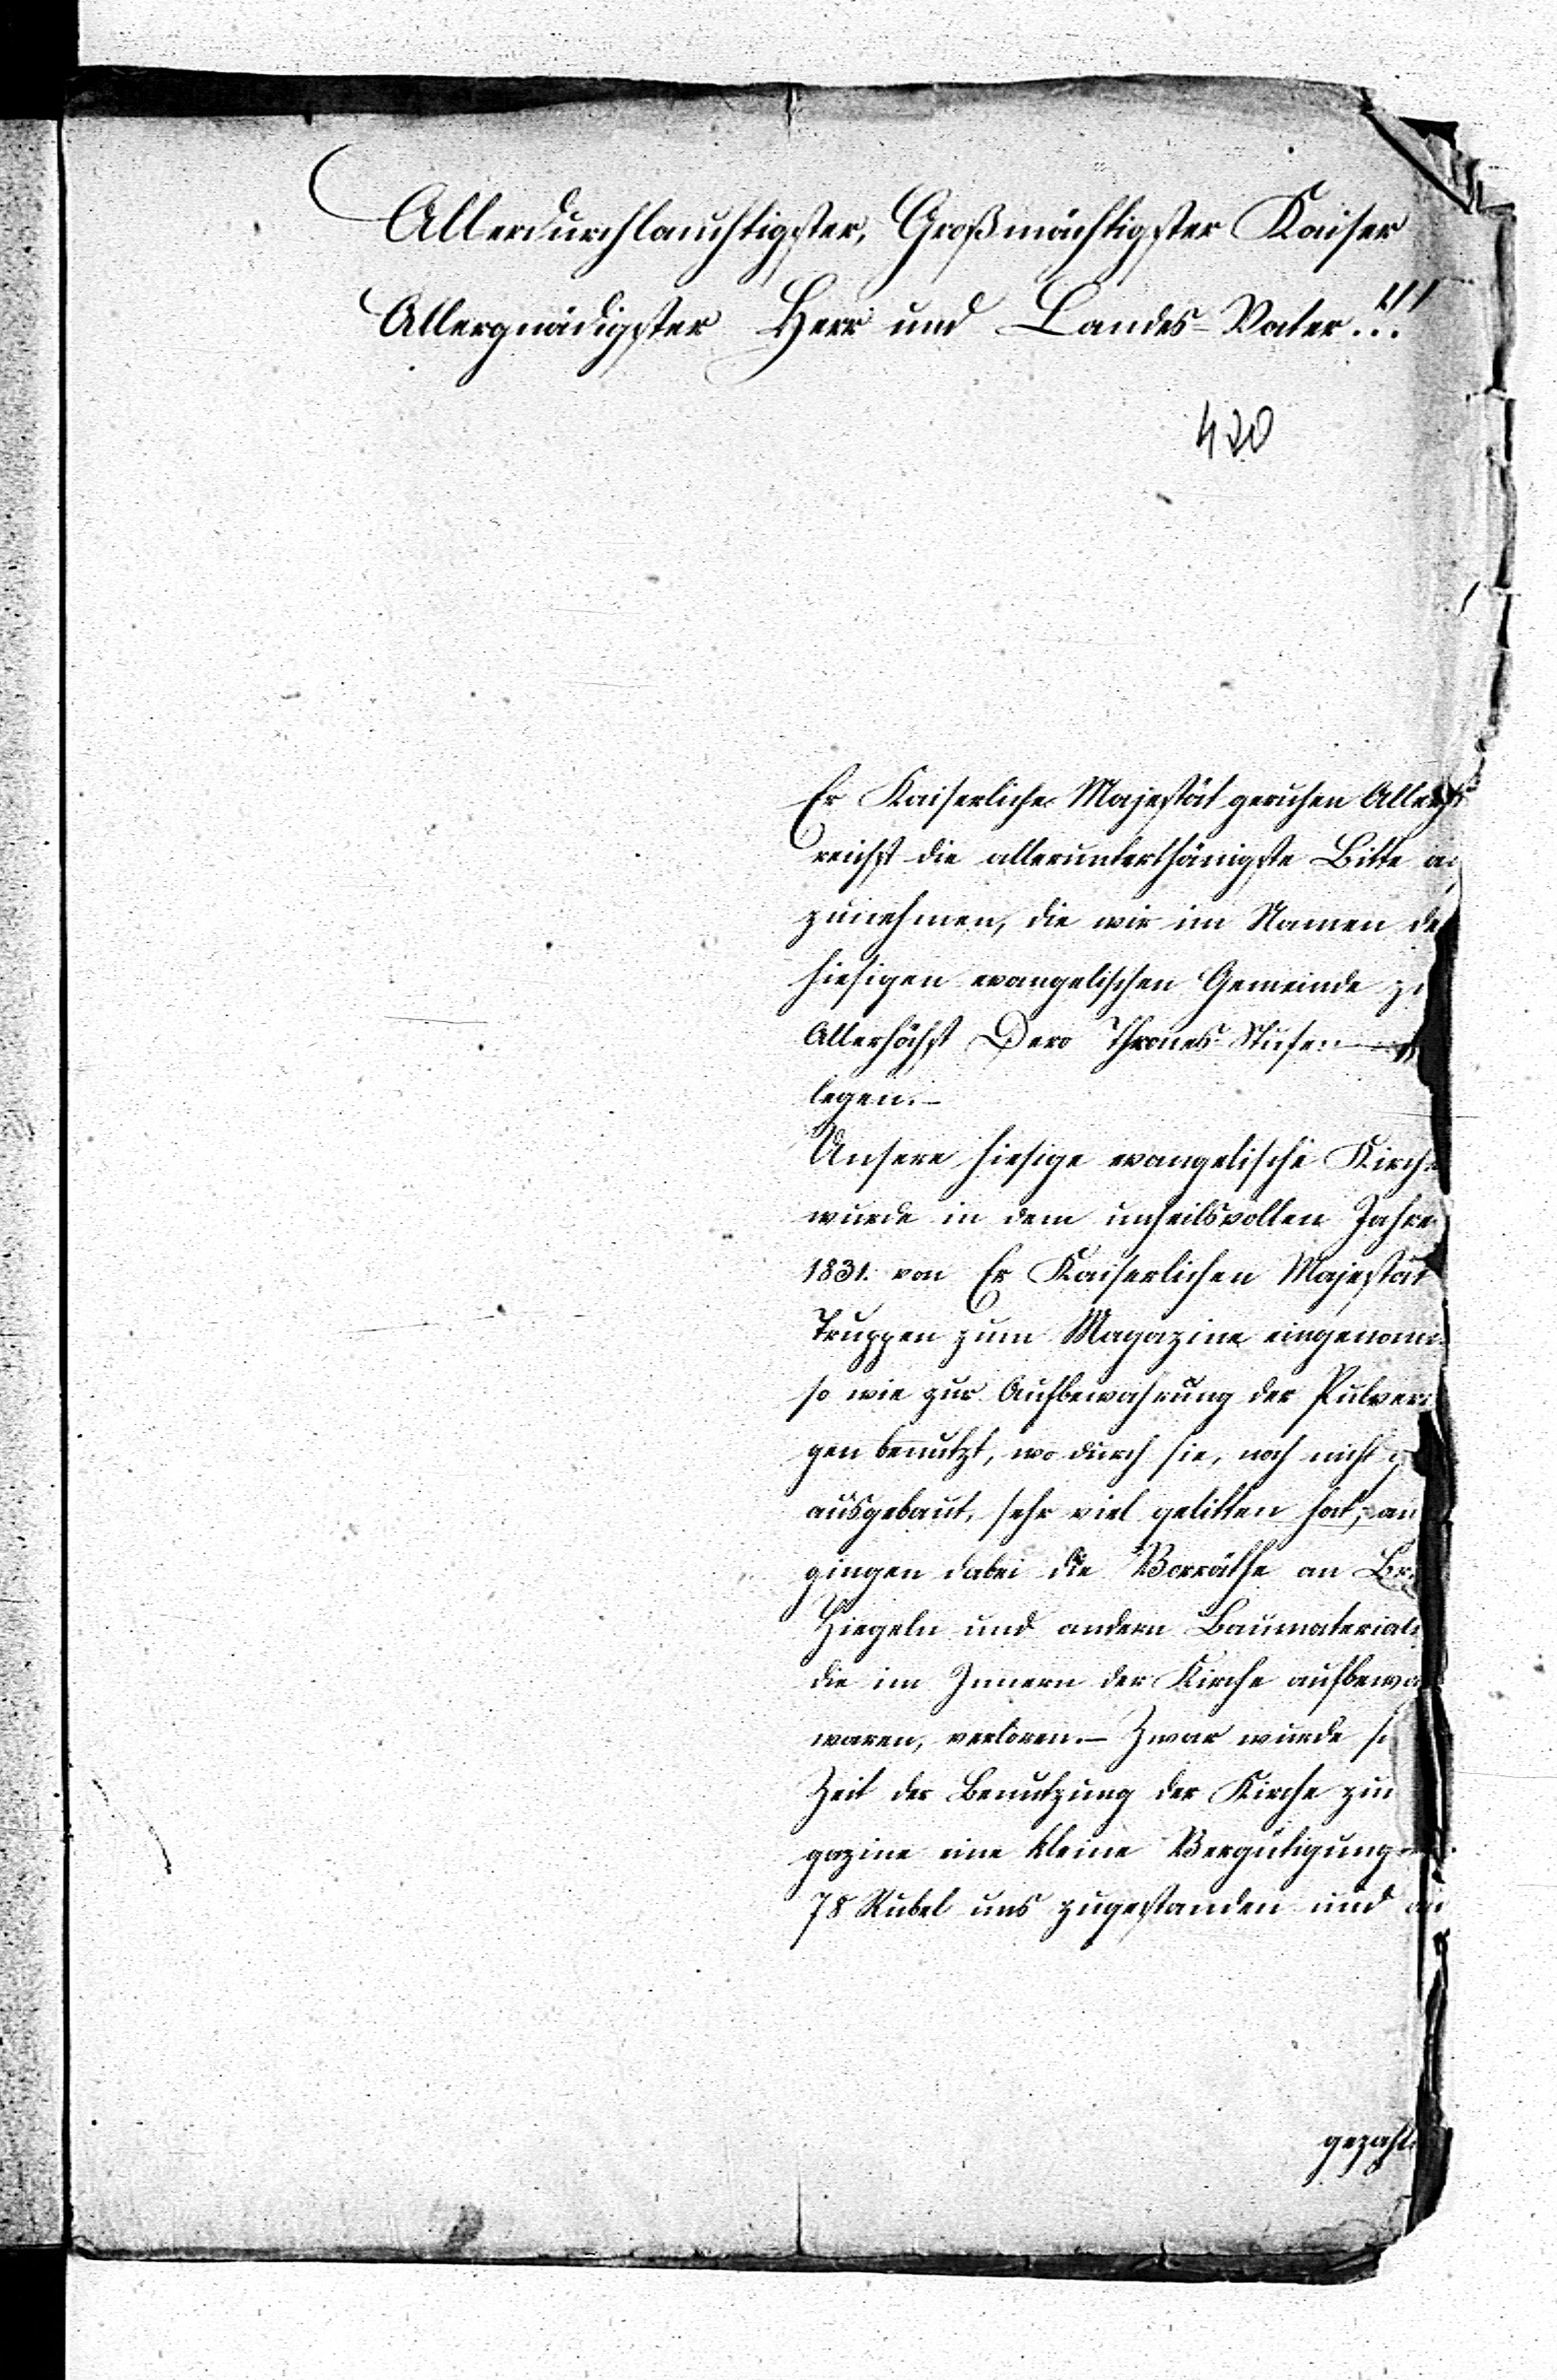 Allerdurchlauchtigster, Großmächtigster Kaiser
Allergnädigster Herr und Landes-Vater!!!
420
Er Kaiserliche Majestät geruhen
reichst die allerunterthänigste Bitte
zunehmen, die wir im Namen
hiesigen evangelischen Gemeinde
Allerhöchst Dero Thrones-Stufen
legen.-
Unsere hiesige evangelische Kirche
wurde in dem unheilsvollen Jahre
1831. von Er Kaiserlichen Majestät
Truppen zum Magazine eingenom
so wie zur Aufbewahrung der Pulver
gen benutzt, wo durch sie, noch nicht
ausgebaut, sehr viel gelitten hat;
gingen dabei die Vorräthe an
Ziegeln und andern Baumateriali
die im Innern der Kirche aufbewa
waren, verloren.- Zwar wurde
Zeit der Benutzung der Kirche
gazine eine kleine Vergütigung
78 Rubel uns zugestanden und
gezahlt